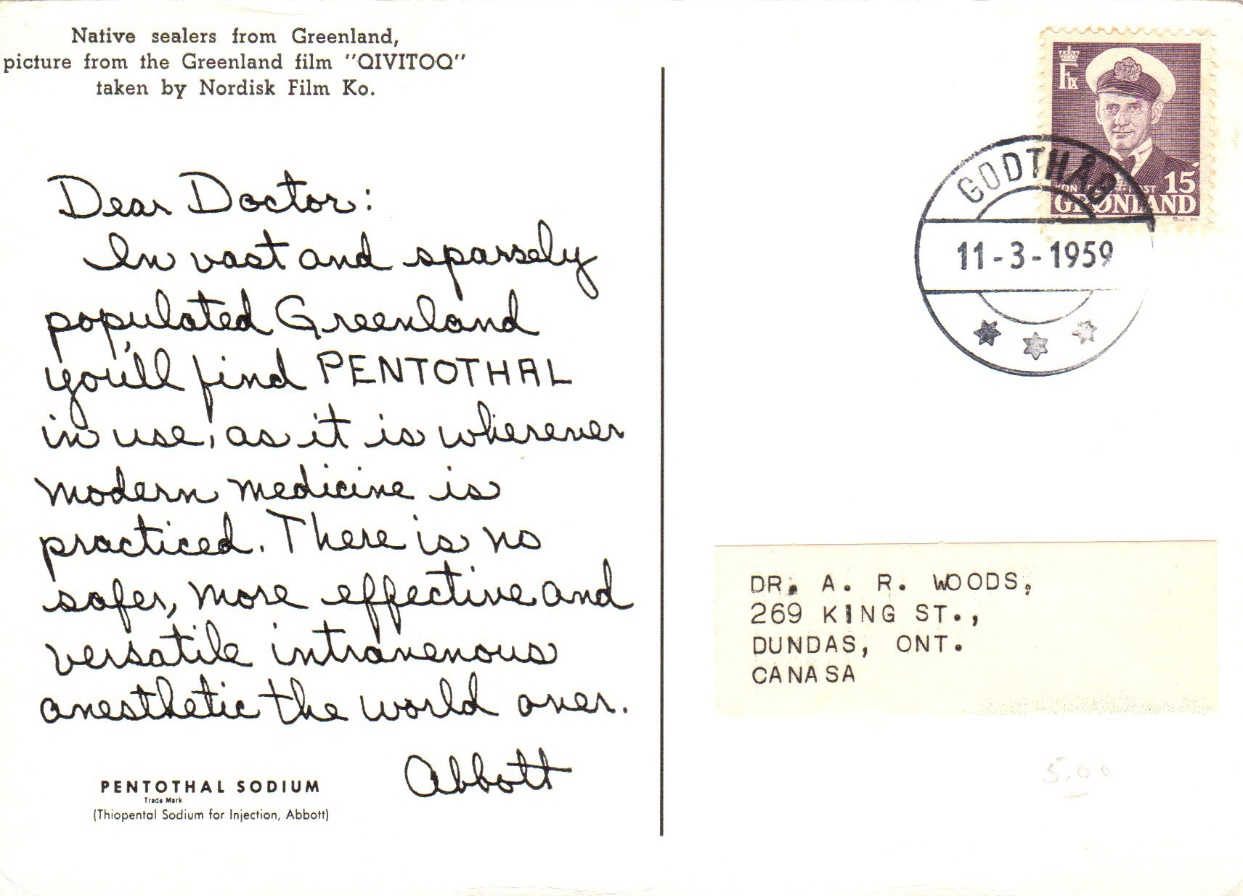 Native sealers from Greenland,
picture from the Greenland film "QIVITOQ"
taken by Nordisk Film Ko.
Dear Doctor:
In vast and sparsely
populated Greenland
you'll find PENTOTHAL
in use, as it is wherever
modern medicine is
practiced. There is no
safer, more effective and
versatile intravenous
anesthetic the world over.
Abbott
PENTOTHAL SODIUM
Trade Mark
(Thiopental Sodium for Injection, Abbott)
F IX
15
GRØNLAND
GODTHÅB
11-3-1959
DR. A. R. WOODS,
269 KING ST.,
DUNDAS, ONT.
CANASA
5.00